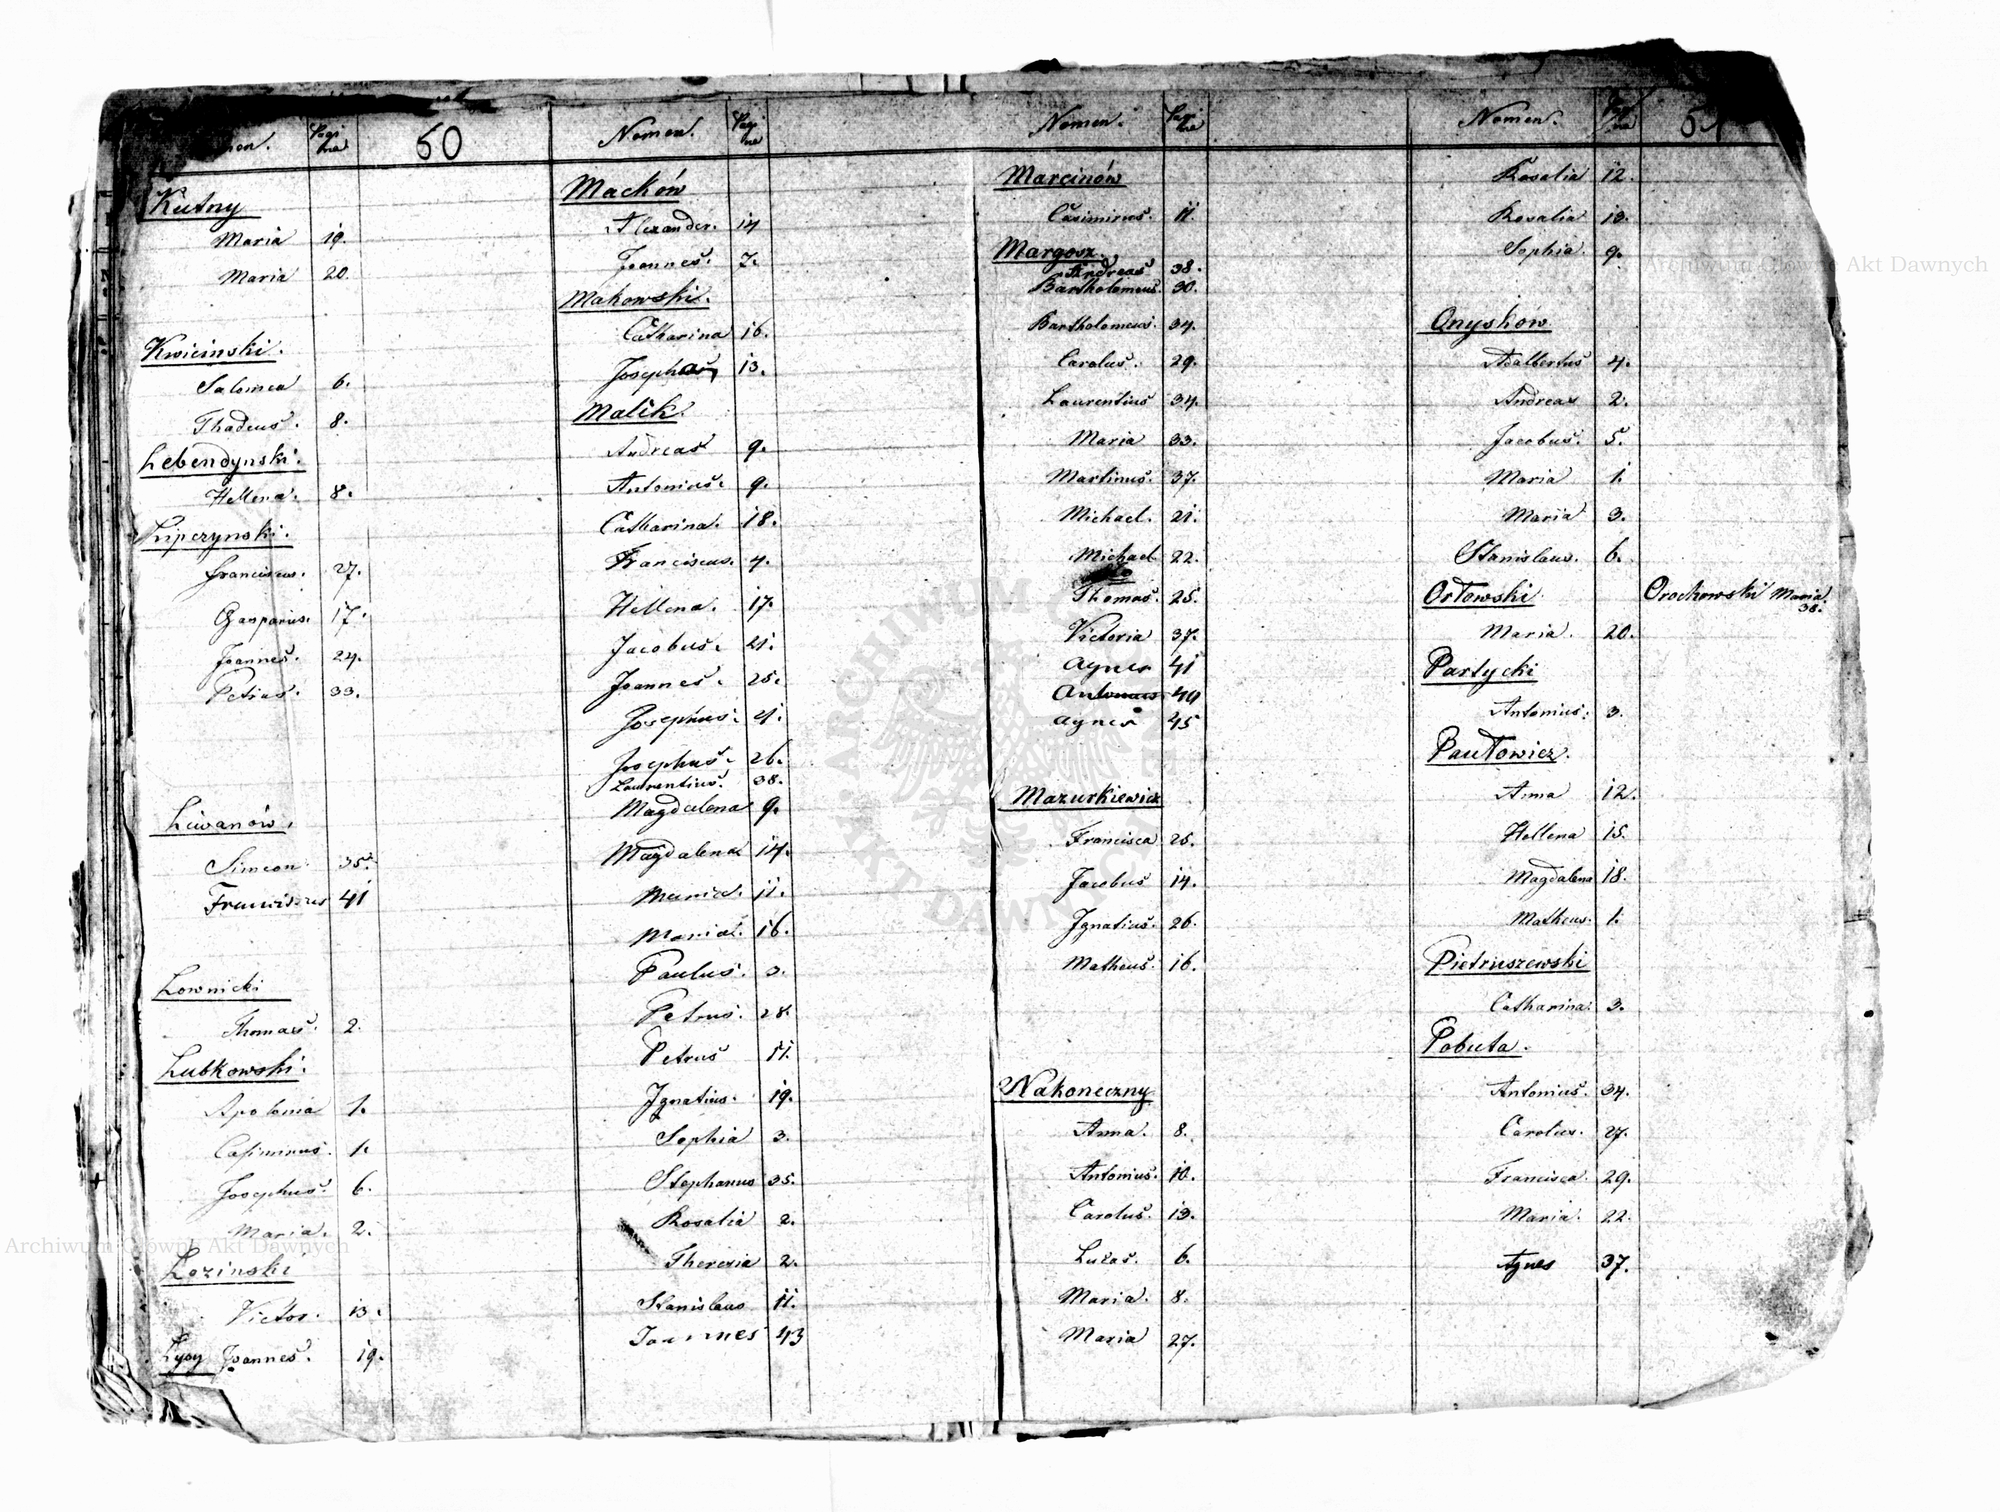 Nomen. Pagina 50
Kutny
Maria 19.
Maria 20.
Kwicinski.
Salomea 6.
Thadeus. 8.
Lebendynski.
Hellena. 8.
Lipczynski.
Franciscus. 27.
Gasparus. 17.
Joannes. 24.
Petrus. 33.
Liwanów.
Simeon 35.
Franciscus 41
Łownicki
Thomas. 2.
Lubkowski.
Apolonia 1.
Casimirus. 1.
Josephus. 6.
Maria. 2.
Łozinski
Victor. 13.
Łysy Joannes. 19.
Nomen. Pagina
Maćków
Alexander. 14
Joannes. 7.
Makowski.
Catharina 16.
Josephus 13.
Malik.
Andreas 9.
Antonius. 9.
Catharina. 18.
Franciscus. 4.
Hellena. 17.
Jacobus. 21.
Joannes. 25.
Josephus. 21.
Josephus. 26.
Laurentius. 38.
Magdalena 9.
Magdalena 14.
Maria. 11.
Maria. 16.
Paulus. 3.
Petrus. 28.
Petrus 11.
Ignatius. 19.
Sophia 3.
Stephanus 35.
Rosalia 2.
Theresia 2.
Stanislaus 11.
Joannes 43
Nomen. Pagina
Marcinów
Casimirus. 11.
Margosz.
Andreas 38.
Bartholomeus. 30.
Bartholomeus. 34.
Carolus. 29.
Laurentius 34.
Maria 33.
Martinus. 37.
Michael. 21.
Michael 22.
Thomas. 25.
Victoria 37.
Agnes 41
Antonius 44
Agnes 45
Mazurkiewicz
Francisca 25.
Jacobus 14.
Ignatius. 26.
Matheus. 16.
Nakoneczny
Anna. 8.
Antonius. 10.
Carolus. 13.
Lucas. 6.
Maria. 8.
Maria 27.
Nomen. 51
Rosalia 12.
Rosalia 13.
Sophia. 9.
Onyskow
Adalbertus 4.
Andreas 2.
Jacobus. 5.
Maria 1.
Maria 3.
Stanislaus. 6.
Orłowski Orochowski Maria
38.
Maria. 20.
Partycki
Antonius. 3.
Pawłowicz.
Anna 12.
Hellena 15.
Magdalena 18.
Matheus. 1.
Pietruszewski
Catharina. 3.
Pobuta.
Antonius. 34.
Carolus. 27.
Francisca. 29.
Maria. 22.
Agnes 37.
Archiwum Główne Akt Dawnych
Archiwum Główne Akt Dawnych
ARCHIWUM GŁÓWNE AKT DAWNYCH